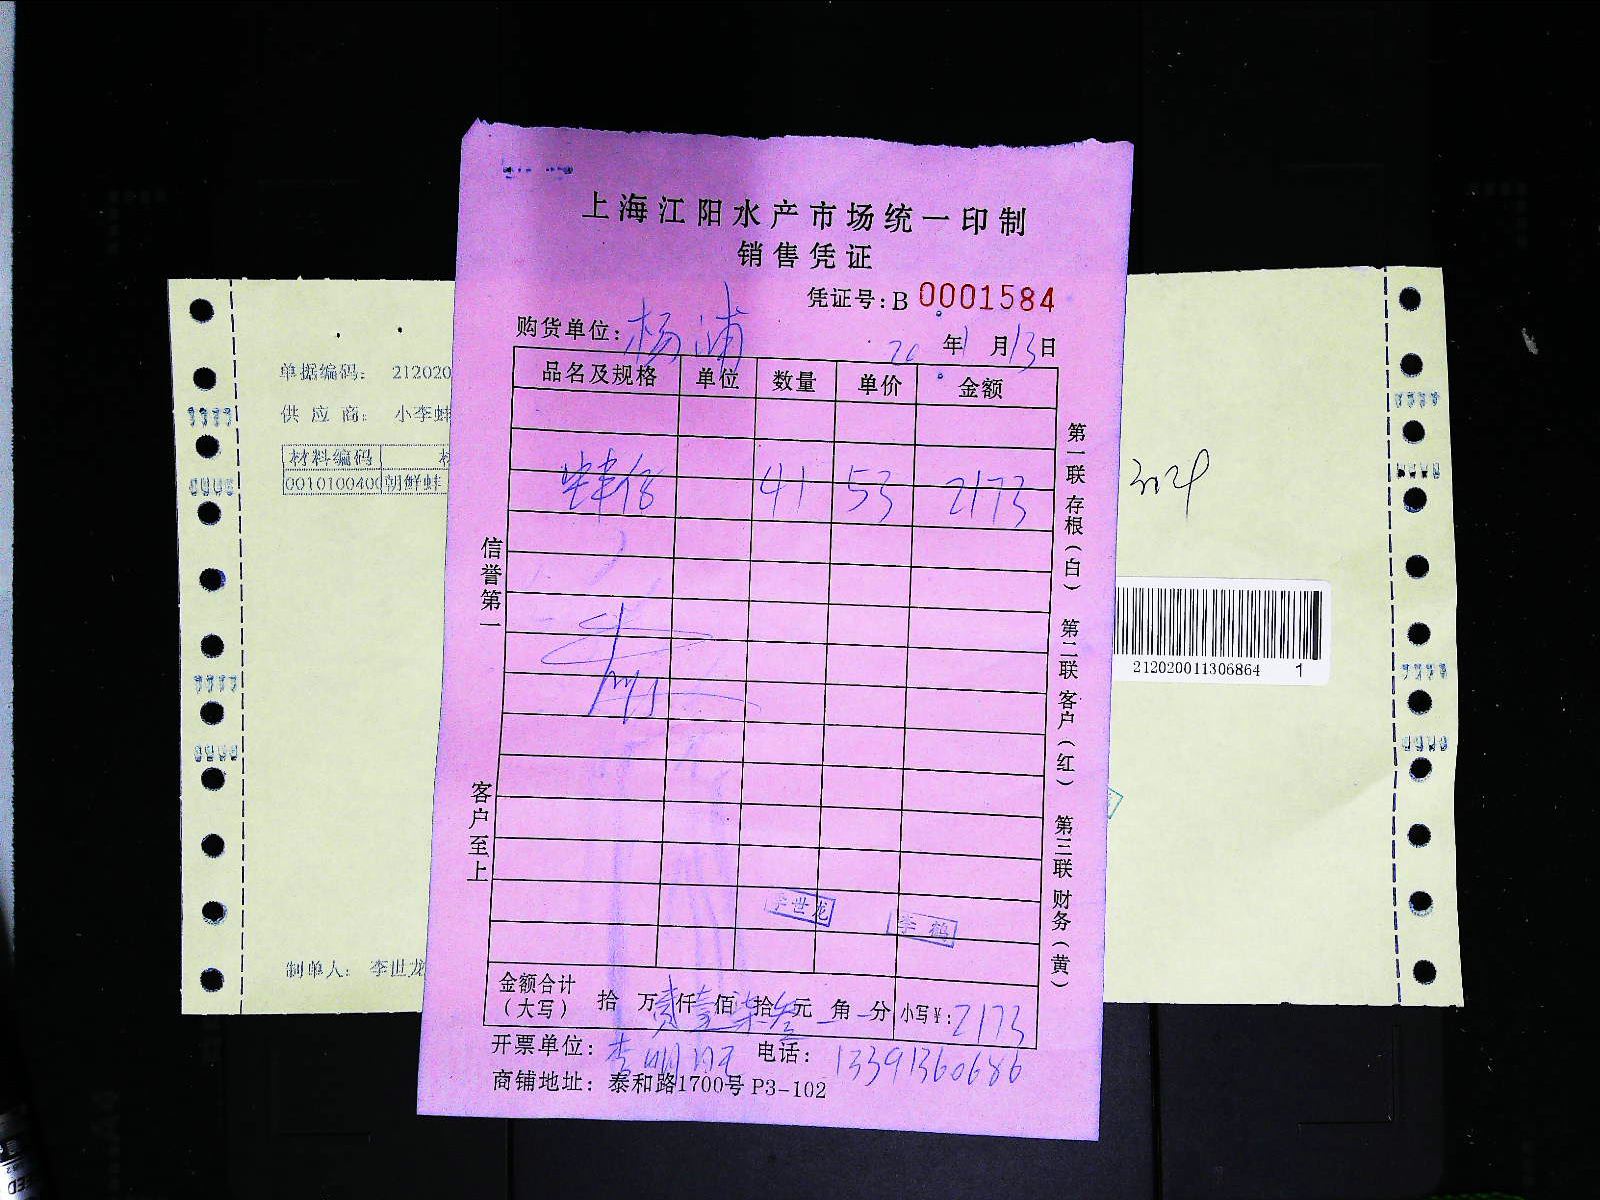 上海江阳水产市场统一印制
销售凭证
凭证号:B 0001584
购货单位: 杨浦
20 年 1 月 13 日
品名及规格 单位 数量 单价 金额
41 53 2173
信誉第一
客户至上
第一联存根(白) 第二联客户(红) 第三联财务(黄)
李世龙
李鹤
金额合计(大写) 拾 万 贰仟 壹佰 柒拾 叁元 角 分 小写¥: 2173
开票单位: 李明 电话: 13391360686
商铺地址: 泰和路1700号 P3-102
单据编码: 212020
供应商: 小李蛙
材料编码
0010100400 朝鲜蚌
制单人: 李世龙
212020011306864 1